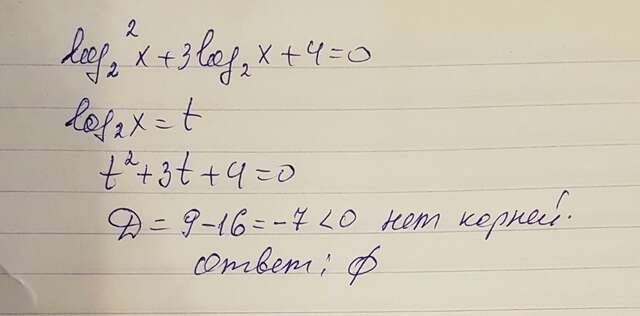 log₂²x+3log₂x+4=0
log₂x=t
t²+3t+4=0
D=9-16=-7<0 нет корней.
ответ: ϕ